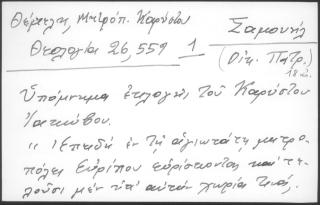 Θέμελη, Μητροπ. Καρύστου
Θεολογία 26, 559 1
Σαμουήλ
(Οἰκ. Πατρ.)
18 αἰ.
Ὑπόμνημα ἐκλογῆς τοῦ Καρύστου
Ἰακώβου.
"Ἐπειδὴ ἐν τῇ ἁγιωτάτῃ μητρο-
πόλει Εὐρίπου εὑρίσκονται καὶ τε-
λοῦσι μὲν ὑπ' αὐτὴν χωρία τινά.